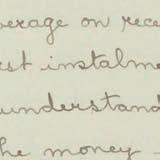 verage on rece
rst instalme
understand
he money -